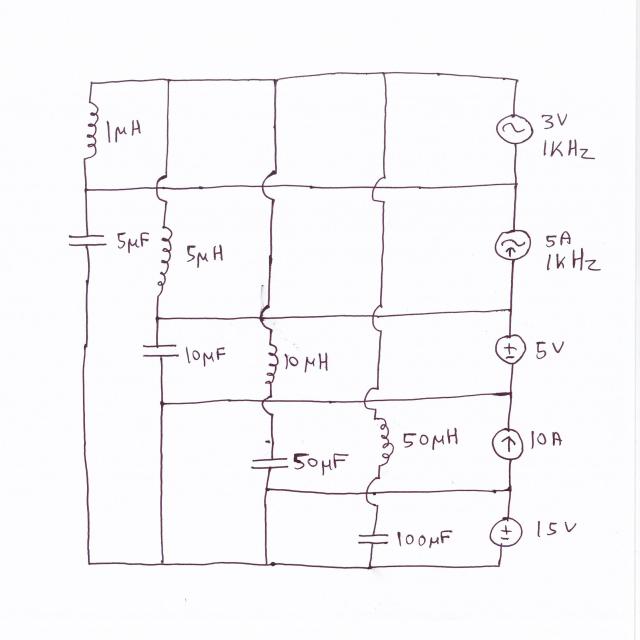 1μH
3V
1KHz
5μF
5μH
5A
1KHz
10μF
10μH
5V
50μF
50μH
10A
100μF
15V